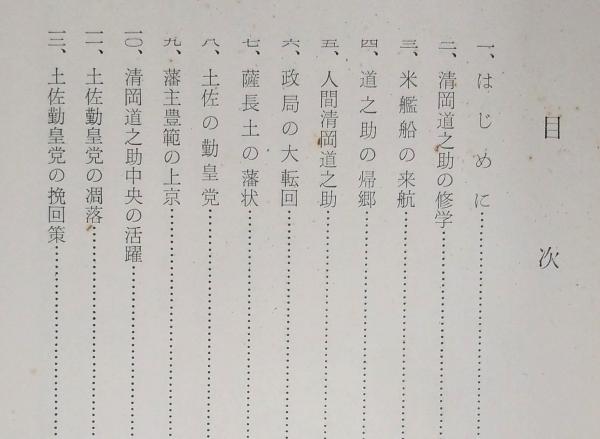 目次
一、はじめに
二、清岡道之助の修学
三、米艦船の来航
四、道之助の帰郷
五、人間清岡道之助
六、政局の大転回
七、薩長土の藩状
八、土佐の勤皇党
九、藩主豊範の上京
一〇、清岡道之助中央の活躍
一一、土佐勤皇党の凋落
一二、土佐勤皇党の挽回策